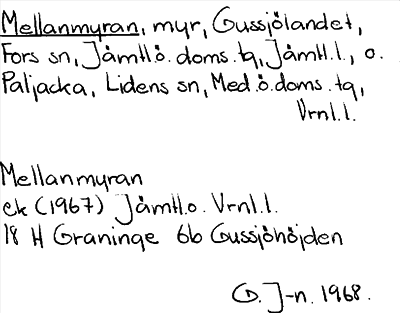 Mellanmyran, myr, Gussjölandet,
Fors sn, Jämtl.ö.doms.tq, Jämtl.l., o.
Paljacka, Lidens sn, Med.ö.doms.tq,
Vrnl.l.
Mellanmyran
ek (1967) Jämtl.o. Vrnl.l.
18 H Graninge 6b Gussjöhöjden
G. J-n. 1968.